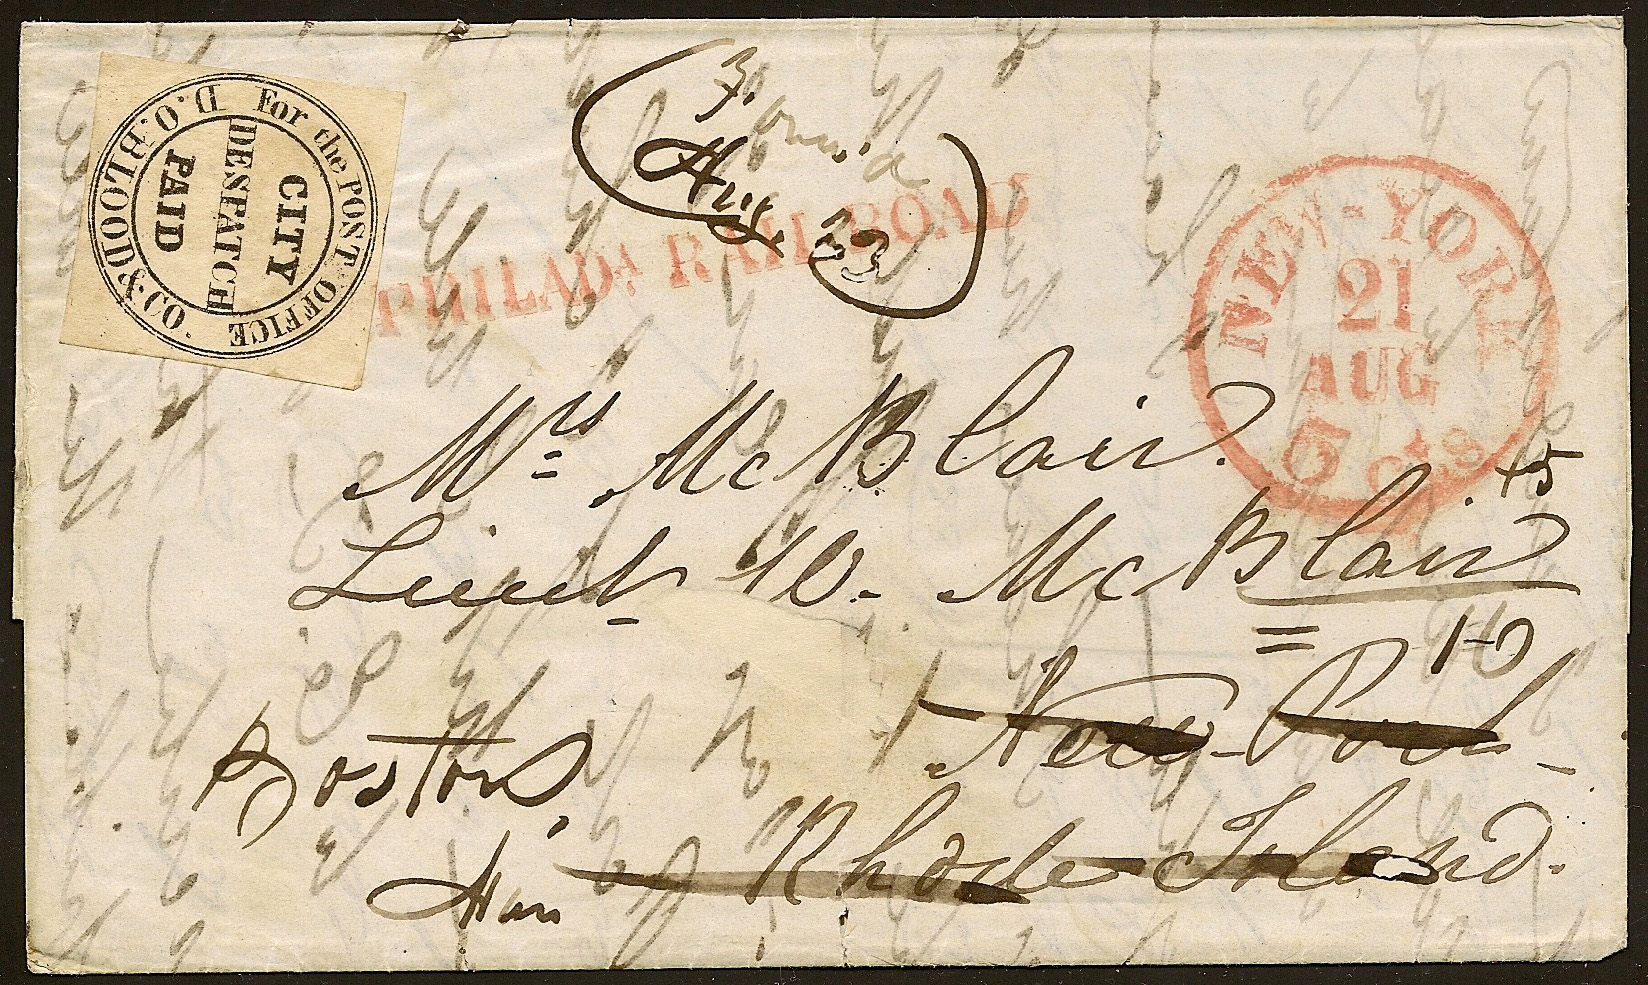 D.O. BLOOD & CO.
For the POST-OFFICE
CITY
DESPATCH
PAID
Ford
Aug. 23
PHILADA RAIL ROAD
NEW-YORK
21
AUG
5 Cts
Mrs McBlair
+5
Lieut W. McBlair
= 10
New-Port
Boston.
Rhode Island.